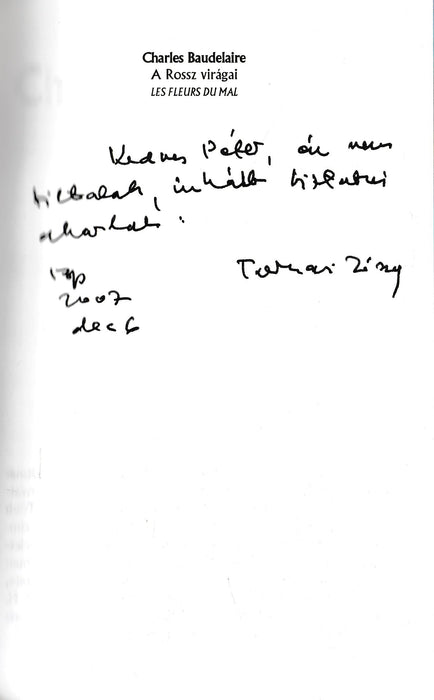 Charles Baudelaire
A Rossz virágai
LES FLEURS DU MAL
Kedves Péter, én nem
inkább
akarlak:
Bp Tornai József
2007
dec 6